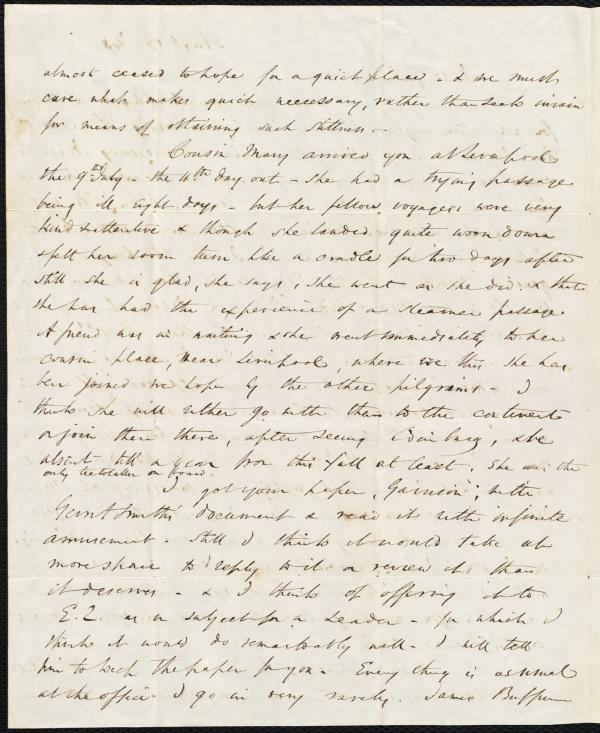 almost ceased to hope for a quiet place - & we must
cure what makes quiet neccessary, rather than seek in vain
for means of obtaining such stillness -
Cousin Mary arrived you at Liverpool
the 9th July - the 11th day out - She had a trying passage
being ill eight days - but her fellow voyagers were very
kind & attentive & though she landed quite worn down
& felt her room turn like a cradle for two days after
still she is glad, she says, she went as she did & that
she has had the experience of a steamer passage.
A friend was in waiting & she went immediately to her
cousin place, near Liverpool, where ere this she has
been joined we hope by the other pilgrims - I
think she will either go with them to the continent
or join them there, after seeing Edinburg, & be
absent till a year from this fall at least. She was the
only teetotaller on board.
I got your paper, Garrison, with
Gerrit Smith's document & read it with infinite
amusement - Still I think it would take up
more space to reply to it or review it than
it deserves - & I think of offering it to
E. Q. as a subject for a Leader - for which I
think it would do remarkably well - I will tell
him to keep the paper for you - Every thing is as usual
at the office - I go in very rarely. James Buffum